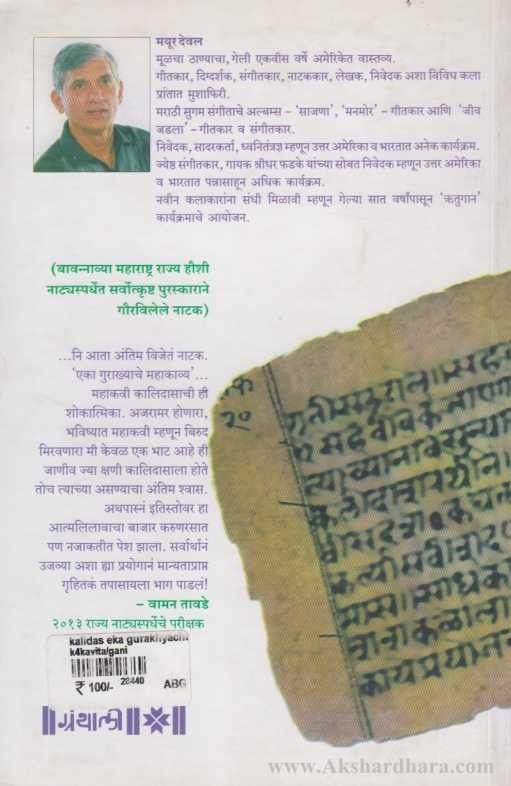 मयूर देवल
मूळचा ठाण्याचा, गेली एकवीस वर्षे अमेरिकेत वास्तव्य.
गीतकार, दिग्दर्शक, संगीतकार, नाटककार, लेखक, निवेदक अशा विविध कला
प्रांतात मुशाफिरी.
मराठी सुगम संगीताचे अल्बम्स – 'साजणा', 'मनमोर' – गीतकार आणि 'जीव
जडला' – गीतकार व संगीतकार.
निवेदक, सादरकर्ता, ध्वनितंत्रज्ञ म्हणून उत्तर अमेरिका व भारतात अनेक कार्यक्रम.
ज्येष्ठ संगीतकार, गायक श्रीधर फडके यांच्या सोबत निवेदक म्हणून उत्तर अमेरिका
व भारतात पन्नासाहून अधिक कार्यक्रम.
नवीन कलाकारांना संधी मिळावी म्हणून गेल्या सात वर्षांपासून 'ऋतुगान'
कार्यक्रमाचे आयोजन.
(बावन्नाव्या महाराष्ट्र राज्य हौशी
नाट्यस्पर्धेत सर्वोत्कृष्ट पुरस्काराने
गौरविलेले नाटक)
...नि आता अंतिम विजेतं नाटक.
'एका गुराख्याचे महाकाव्य'...
महाकवी कालिदासाची ही
शोकात्मिका. अजरामर होणारा,
भविष्यात महाकवी म्हणून बिरुद
मिरवणारा मी केवळ एक भाट आहे ही
जाणीव ज्या क्षणी कालिदासाला होते
तोच त्याच्या असण्याचा अंतिम श्वास.
अथपास्नं इतिस्तोवर हा
आत्मलिलावाचा बाजार करुणरसात
पण नजाकतीत पेश झाला. सर्वार्थानं
उजव्या अशा ह्या प्रयोगानं मान्यताप्राप्त
गृहितकं तपासायला भाग पाडलं!
– वामन तावडे
२०१३ राज्य नाट्यस्पर्धेचे परीक्षक
kalidas eka gurakhyach
k4kavita/gani
₹ 100/- 28440 ABG
ग्रंथाली
www.Akshardhara.com